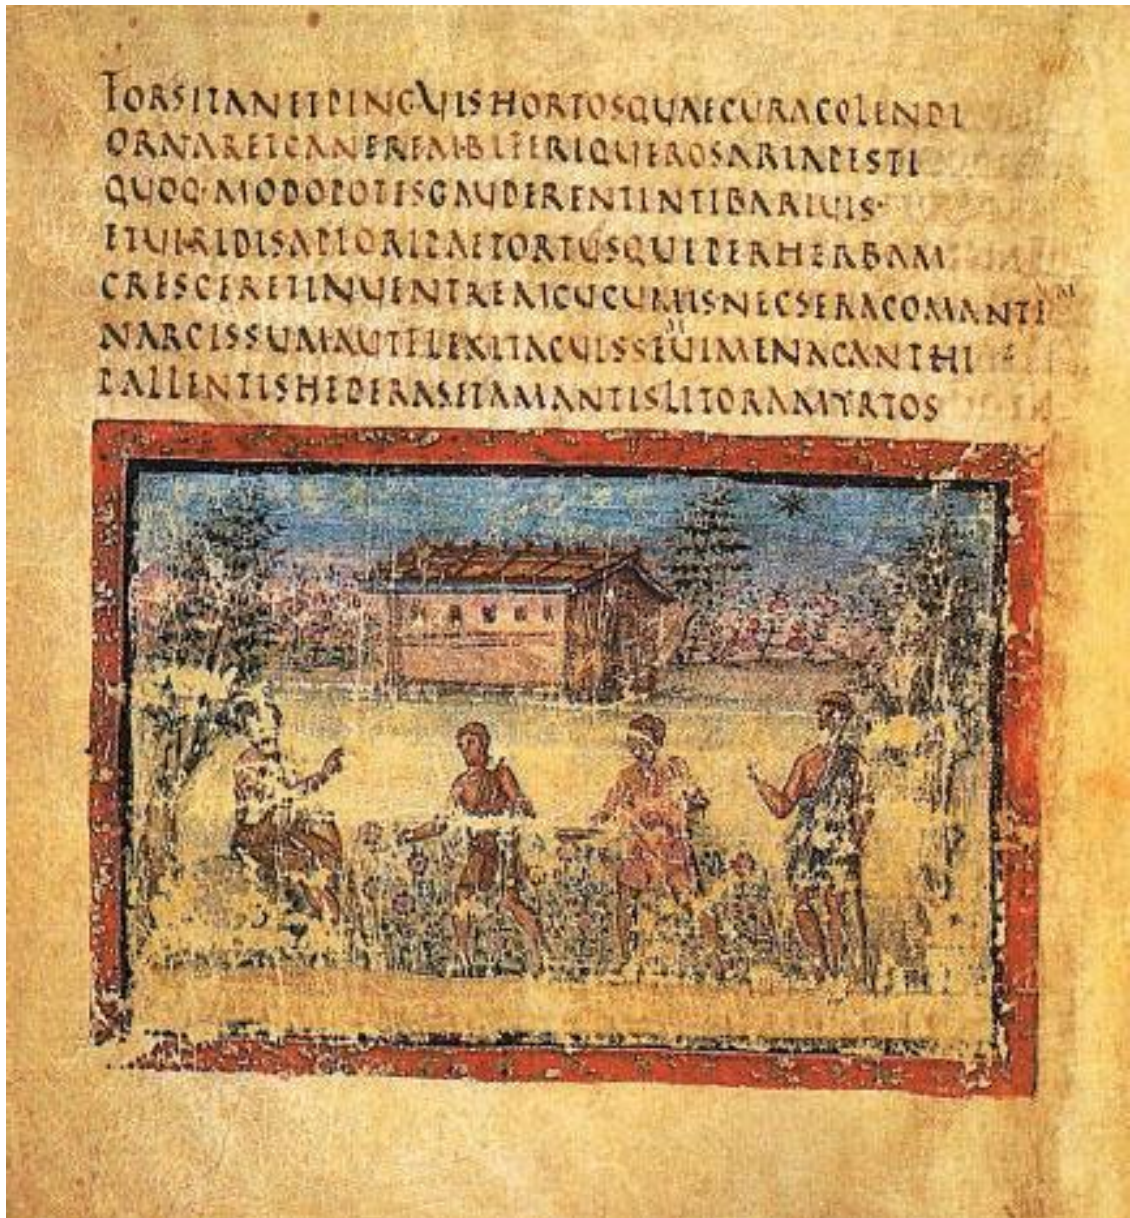 FORSITANETPINGUISHORTOSQUAECURACOLENDI
ORNARETCANEREM·BIFERIQUEROSARIAPESTI
QUOQ·MODOPOTESGAUDERENTINTIBARIUIS·
ETUIRIDISAPIORIPAETORTUSQUEPERHERBAM
CRESCERETINUENTREMCUCUMISNECSERACOMANTEM
NARCISSUM·AUTFLEXITACUISSEMUIMENACANTHI
PALLENTISHEDERASETAMANTISLITORAMYRTOS